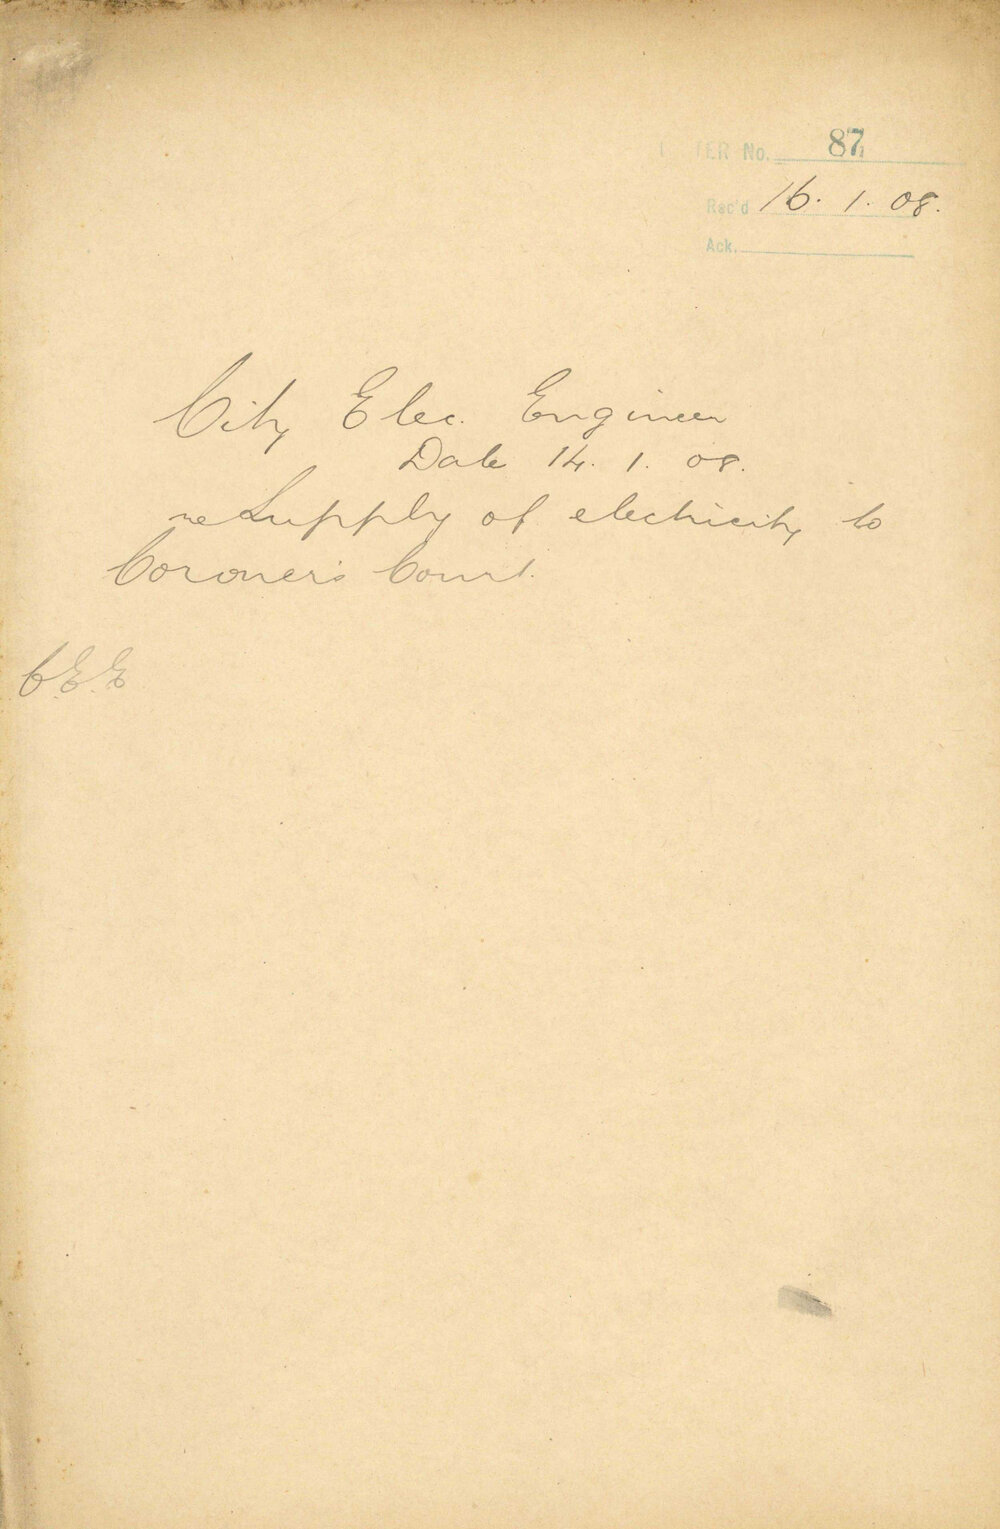 LETTER No. 87
Rec'd 16. 1. 08.
Ack.
City Elec. Engineer
Date 14. 1. 08.
re Supply of electricity to
Coroner's Court.
C.E.E